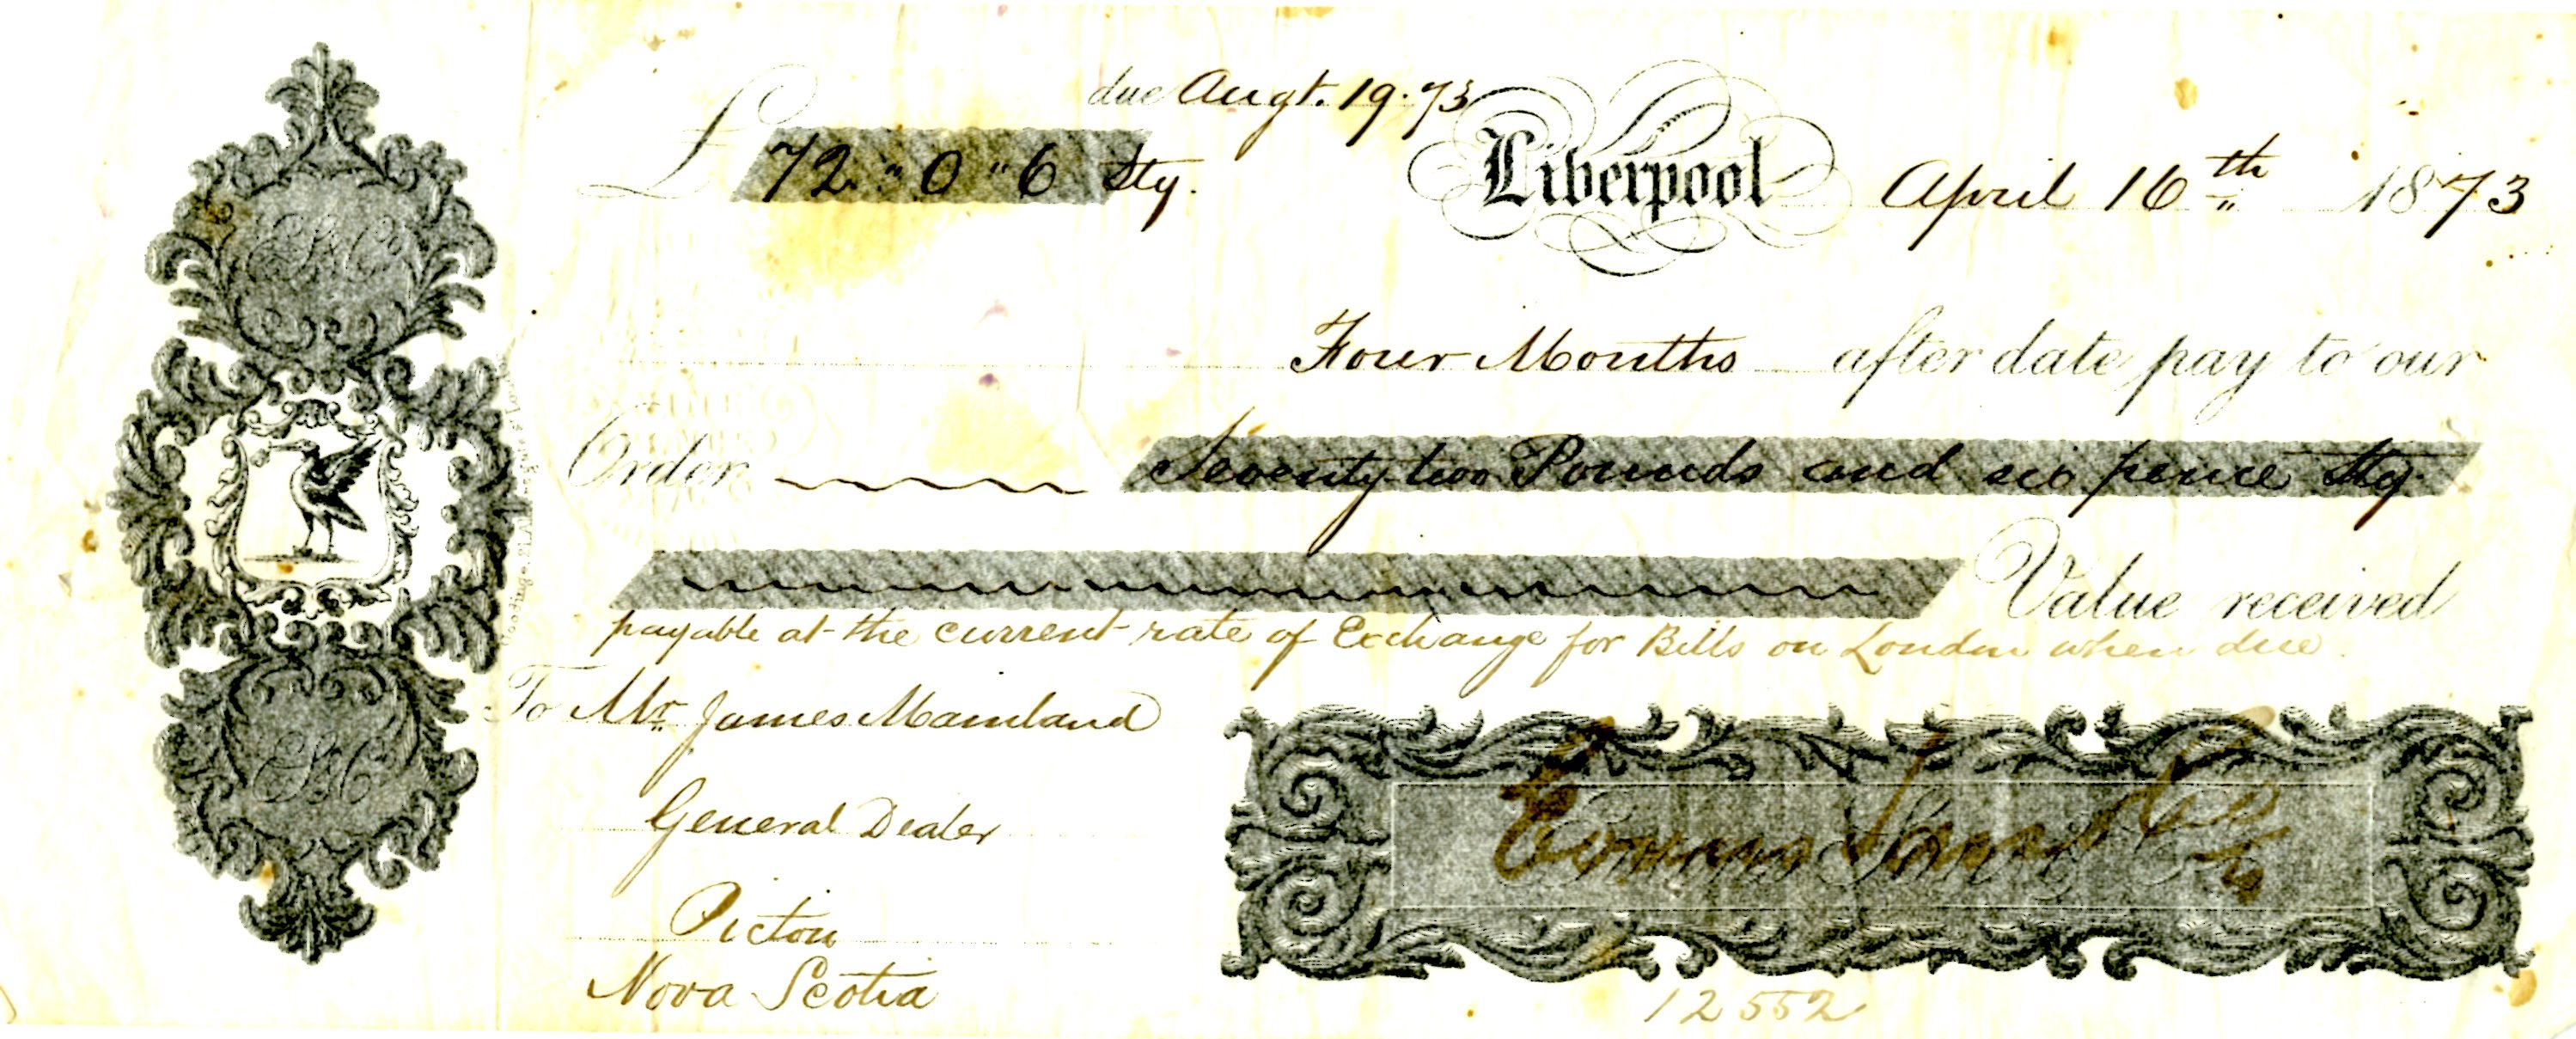 due Augt. 19. 73
£ 72 " 0 " 6 Stg. Liverpool April 16th 1873
Four Months after date pay to our
Order Seventy two Pounds and six pence Stg.
Value received
payable at the current rate of Exchange for Bills on London when due.
To Mr. James Mainland
General Dealer
Pictou
Nova Scotia
Evans Sons & Co
12552